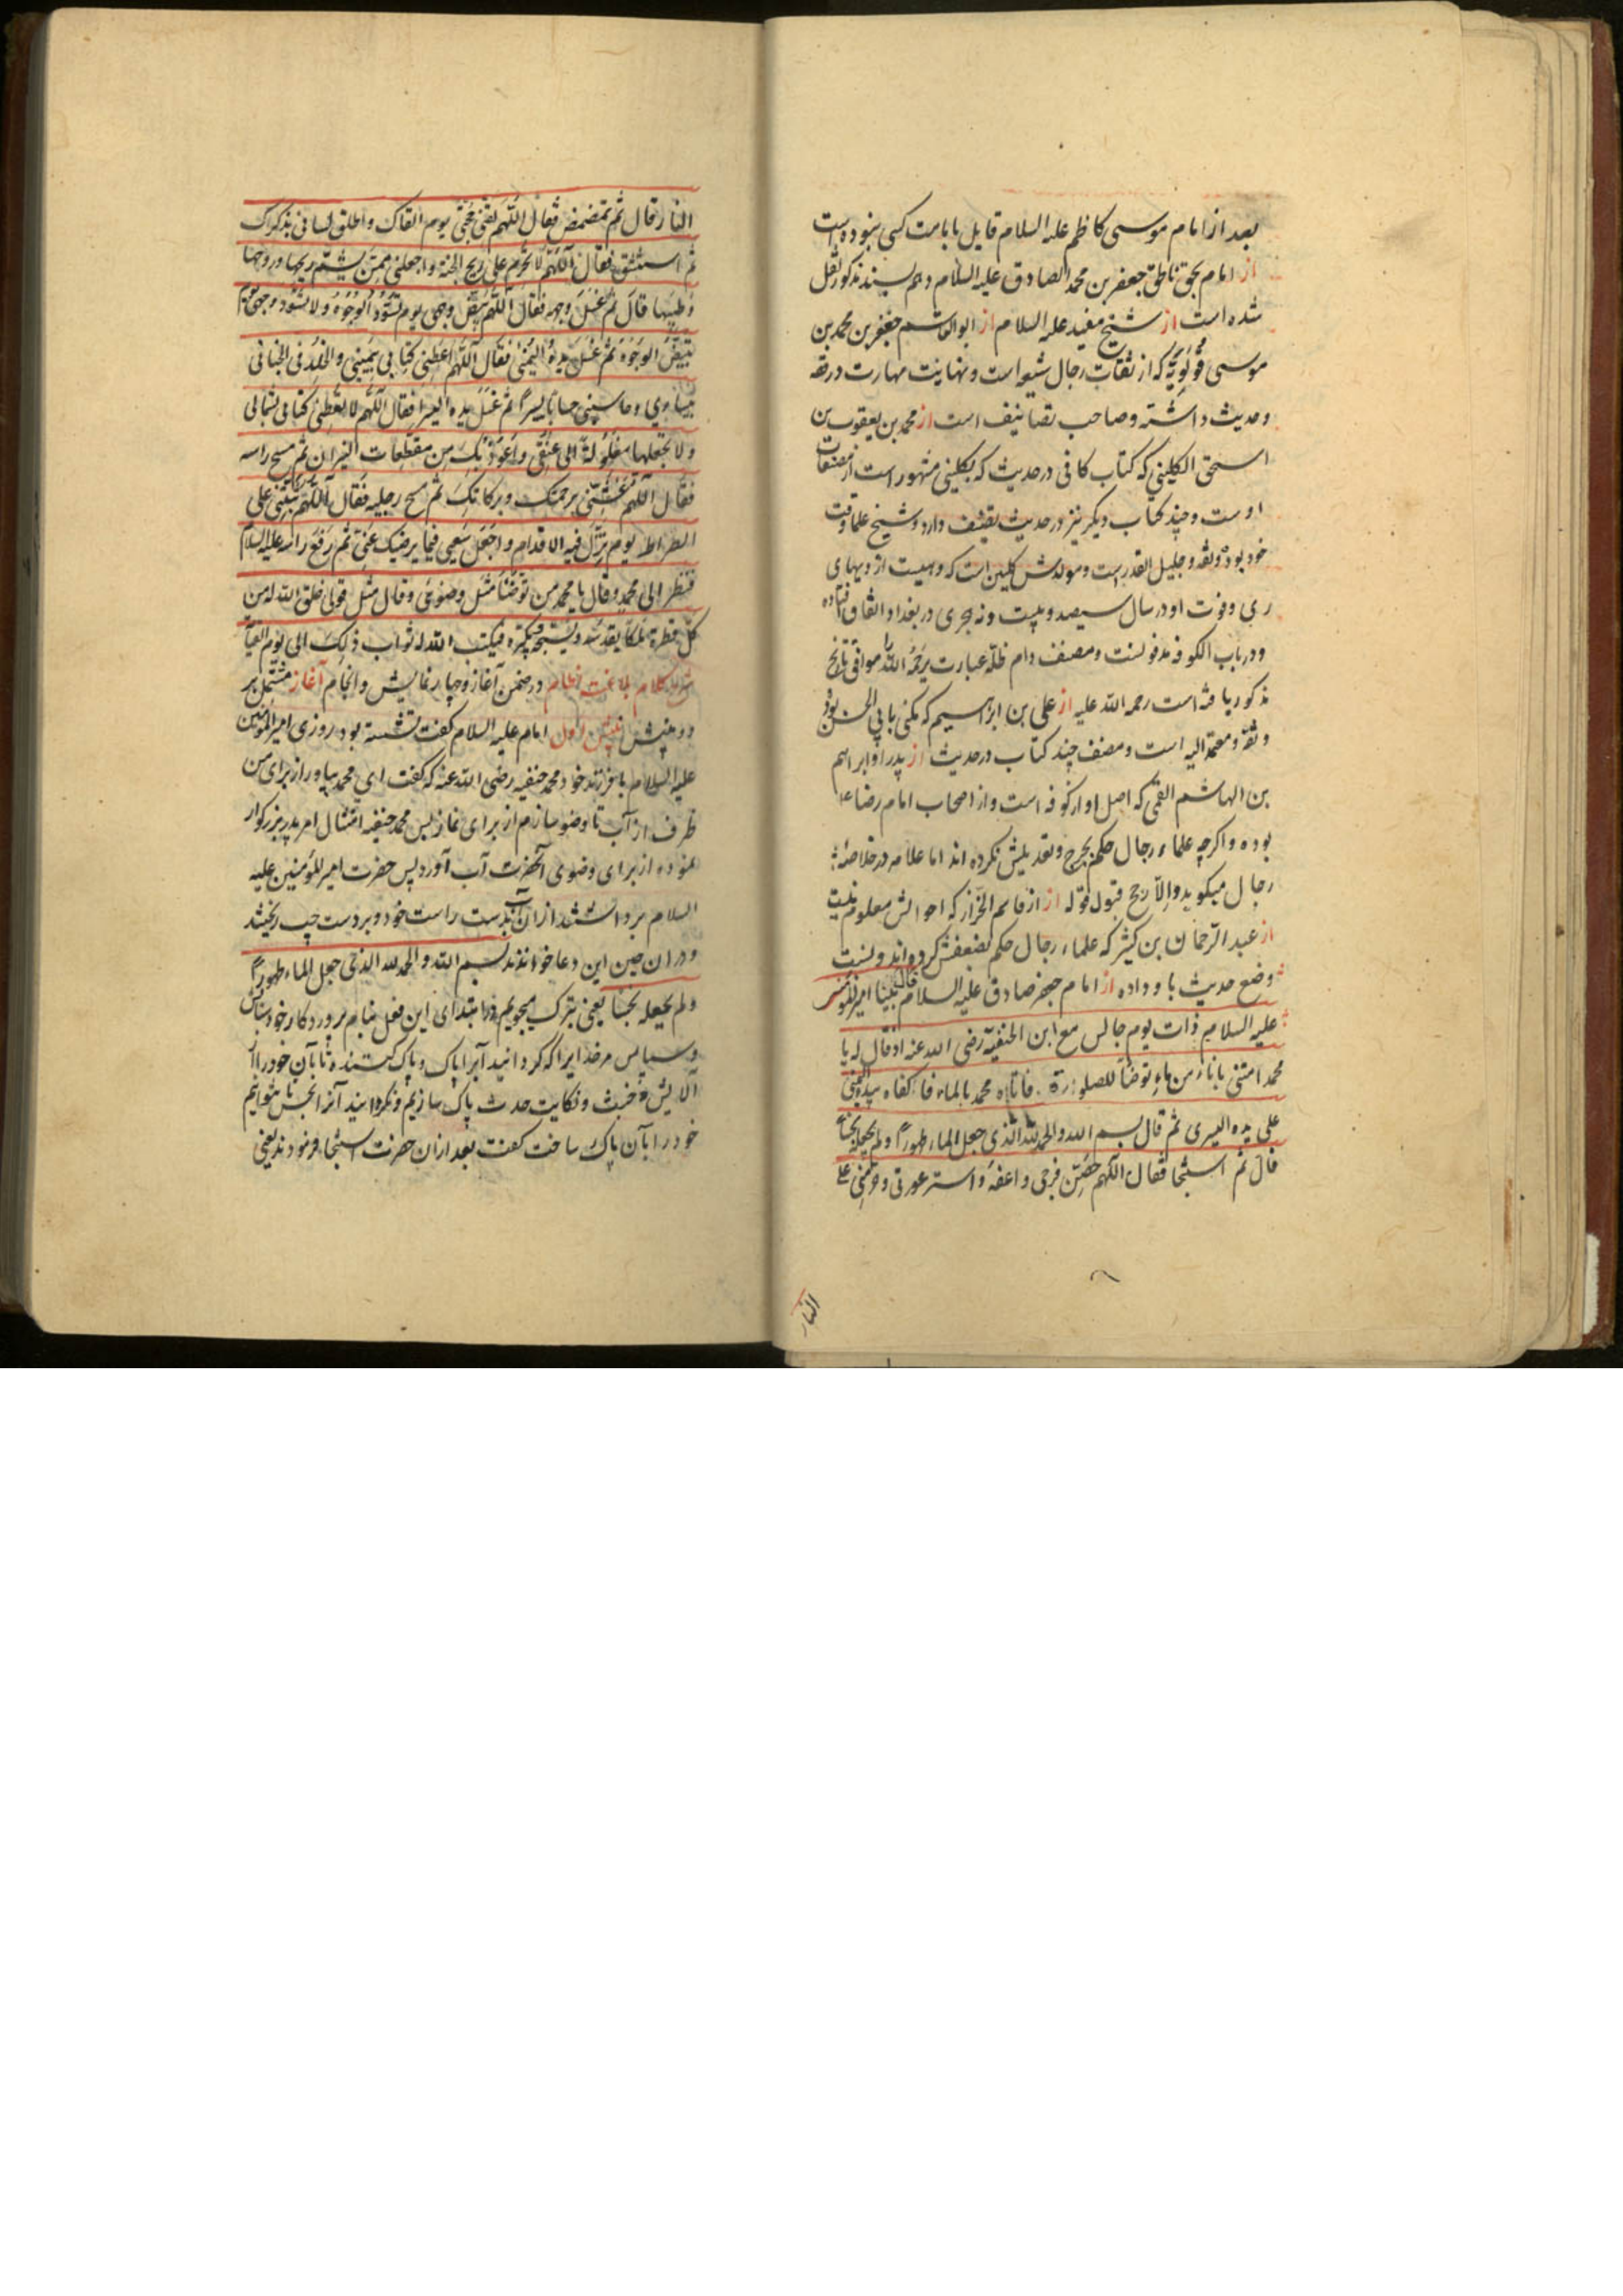 بعد از امام موسی کاظم علیه السلام قایل بامامت کسی نبوده است
از امام بحق ناطق جعفر بن محمد الصادق علیه السلام وهم بسند مذکور نقل
شده است از شیخ مفید علیه السلام از ابو القاسم جعفر بن محمد بن
موسی قولویه که از ثقات رجال شیعه است ونهایت مهارت در فقه
وحدیث داشته وصاحب تصانیف است از محمد بن یعقوب بن
اسحق الکلینی که کتاب کافی در حدیث که بکلینی مشهور است از مصنفات
اوست وچند کتاب دیکر نیز در حدیث تصنیف دارد وشیخ علما وقت
خود بوده وثقه وجلیل القدر است ومولدش کلین است که دهیست از دیهای
ری وفوت او در سال سیصد وبیست ونه هجری در بغداد اتفاق افتاده
ودر باب الکوفه مدفونست ومصنف دام ظله عبارت یرحمه الله را موافق تاریخ
مذکور یافته است رحمه الله علیه از علی بن ابراهیم که مکنی بابی الحسن بود
وثقه ومعتمد الیه است ومصنف چند کتاب در حدیث از پدر او ابراهیم
بن الهاشم القمی که اصل او از کوفه است واز اصحاب امام رضا ع
بوده واکرچه علماء رجال حکم بجرح وتعدیلش نکرده اند اما علامه در خلاصه
رجال میکوید والارجح قبول قوله از قاسم الخزاز که احوالش معلوم نیست
از عبد الرحمان بن کثیر که علماء رجال حکم بضعفش کرده اند ونسبت
وضع حدیث باو داده از امام جعفر صادق علیه السلام قال بینا امیر المؤمنین
علیه السلام ذات یوم جالس مع ابن الحنفیة رضی الله عنه اذ قال له یا
محمد ائتنی باناء من ماء توضأ للصلوة فاتاه محمد بالماء فاکفاه بیده الیمنی
علی یده الیسری ثم قال بسم الله والحمد لله الذی جعل الماء طهورا ولم یجعله نجسا
قال ثم استنجا فقال اللهم حصن فرجی واعفه واستر عورتی وحرمنی علی
النار
النار قال ثم تمضمض فقال اللهم لقنی حجتی یوم القاک واطلق لسانی بذکراک
ثم استنشق فقال اللهم لا تحرم علی ریح الجنة واجعلنی ممن یشم ریحها وروحها
وطیبها قال ثم غسل وجهه فقال اللهم بیض وجهی یوم تسود الوجوه ولا تسود وجهی یوم
تبیض الوجوه ثم غسل یده الیمنی فقال اللهم اعطنی کتابی بیمینی والخلد فی الجنان
بیساری وحاسبنی حسابا یسیرا ثم غسل یده الیسرا فقال اللهم لا تعطنی کتابی بشمالی
ولا تجعلها مغلولة الی عنقی واعوذ بک من مقطعات النیران ثم مسح راسه
فقال اللهم غشنی برحمتک وبرکاتک ثم مسح رجلیه فقال اللهم ثبتنی علی
الصراط یوم تزل فیه الاقدام واجعل سعیی فیما یرضیک عنی ثم رفع راسه علیه السلام
فنظر الی محمد وقال یا محمد من توضأ مثل وضوئی وقال مثل قولی خلق الله له من
کل قطرة ملکا یقدسه ویسبحه ویکبره فیکتب الله له ثواب ذلک الی یوم القیمة
کلام بلاغت نظام در ضمن آغاز وچهار نمایش وانجام آغاز مشتمل بر
دو بینش بینش اول امام علیه السلام کفت نشسته بود روزی امیر المؤمنین
علیه السلام با فرزند خود محمد حنفیه رضی الله عنه که کفت ای محمد بیاور از برای من
ظرف از آب تا وضو سازم از برای نماز پس محمد حنفیه امتثال امر پدر بزرکوار
نموده از برای وضوی آنحضرت آب آورد پس حضرت امیر المؤمنین علیه
السلام برداشتند از ان آب بدست راست خود وبر دست چپ ریختند
ودر ان حین این دعا خواندند بسم الله والحمد لله الذی جعل الماء طهورا
ولم یجعله نجسا یعنی تبرک میجویم در ابتدای این فعل بنام پروردکار خود وستایش
وسپاس مر خدایرا که کردانید آبرا پاک وپاک کننده تا بآن خود را از
آلایش خبث ونکایت حدث پاک سازیم ونکردانید آنرا نجس تا نتوانیم
خود را بآن پاک ساخت کفت بعد ازان حضرت استنجا فرمودند یعنی